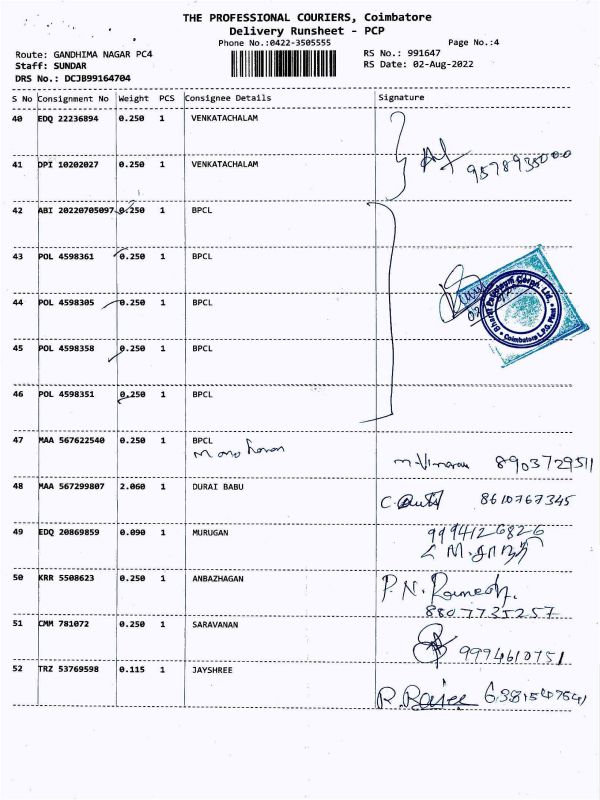 THE PROFESSIONAL COURIERS, Coimbatore
Delivery Runsheet - PCP
Phone No.:0422-3505555 Page No.:4
Route: GANDHIMA NAGAR PC4 RS No.: 991647
Staff: SUNDAR RS Date: 02-Aug-2022
DRS No.: DCJB99164704
S No Consignment No Weight PCS Consignee Details Signature
40 EDQ 22236894 0.250 1 VENKATACHALAM
9578935000
41 DPI 10202027 0.250 1 VENKATACHALAM
42 ABI 20220705097 0.250 1 BPCL
43 POL 4598361 0.250 1 BPCL
44 POL 4598305 0.250 1 BPCL
Bharat Petroleum Corpn. Ltd.,
Coimbatore L.P.G. Plant
45 POL 4598358 0.250 1 BPCL
46 POL 4598351 0.250 1 BPCL
47 MAA 567622540 0.250 1 BPCL
Mano haran
8903729511
48 MAA 567299807 2.060 1 DURAI BABU
8610767345
49 EDQ 20869859 0.090 1 MURUGAN
9994126826
50 KRR 5508623 0.250 1 ANBAZHAGAN
P.N. Ramesh.
8807735257
51 CMM 781072 0.250 1 SARAVANAN
9994610751
52 TRZ 53769598 0.115 1 JAYSHREE